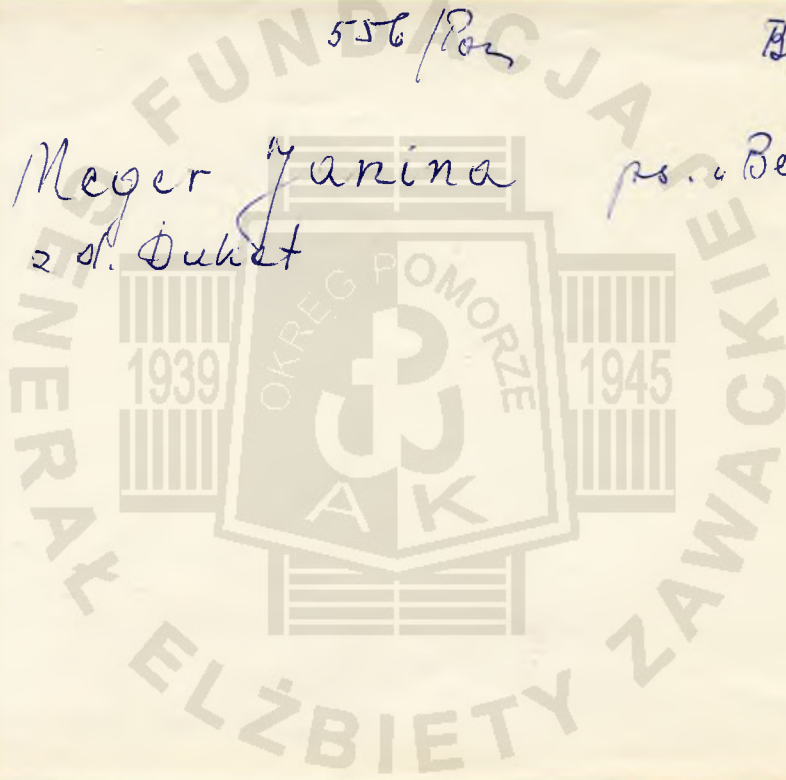 556/Pom B
Meger Janina ps. „Be
z d. Dukat
FUNDACJA GENERAŁ ELŻBIETY ZAWACKIEJ
OKRĘG POMORZE
1939 1945
AK